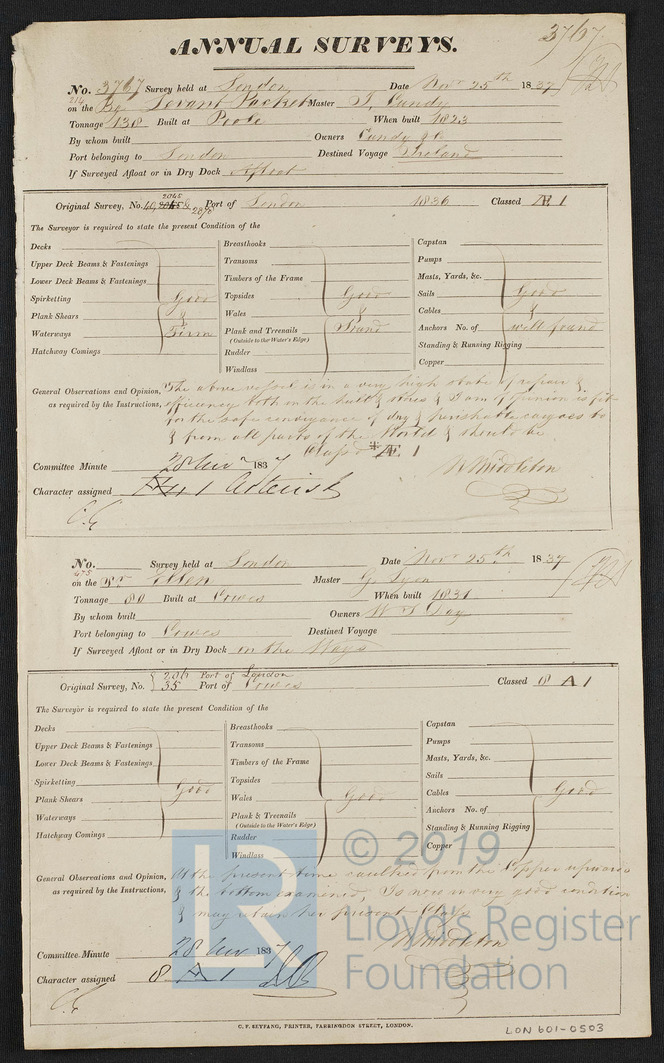 3767
ANNUAL SURVEYS.
No. 3767 Survey held at London Date Novr 25th 1837
on the Bg Levant Packet Master J. Gundy
Tonnage 138 Built at Poole When built 1823
By whom built Owners &Co
Port belonging to London Destined Voyage Ireland
If Surveyed Afloat or in Dry Dock Afloat
2045
Original Survey, No. Port of London 1836 Classed Æ 1
The Surveyor is required to state the present Condition of the
Decks
Upper Deck Beams & Fastenings
Lower Deck Beams & Fastenings
Spirketting Good
Plank Shears &
Waterways Firm
Hatchway Comings
Breasthooks
Transoms
Timbers of the Frame
Topsides Good
Wales &
Plank and Treenails Sound
(Outside to the Water's Edge)
Rudder
Windlass
Capstan
Pumps
Masts, Yards, &c.
Sails Good
Cables &
Anchors No. of well found
Standing & Running Rigging
Copper
General Observations and Opinion, The above vessel is in a very high state of repair &
as required by the Instructions, efficiency both in the hull & stores & I am of opinion is fit
for the safe conveyance of dry & perishable cargoes to
& from all parts of the World & should be
Class'd * Æ 1
Committee Minute 28 Novr 1837 W Middleton
Character assigned Æ 1 Asterisk
No. Survey held at London Date Novr 25th 1837
on the Ellen Master G.
Tonnage 80 Built at Cowes When built 1831
By whom built Owners W S Day
Port belonging to Cowes Destined Voyage
If Surveyed Afloat or in Dry Dock on the Ways
206 Port of London
Original Survey, No. 35 Port of Cowes Classed 8 A 1
The Surveyor is required to state the present Condition of the
Decks
Upper Deck Beams & Fastenings
Lower Deck Beams & Fastenings
Spirketting
Plank Shears Good
Waterways
Hatchway Comings
Breasthooks
Transoms
Timbers of the Frame
Topsides
Wales Good
Plank & Treenails
(Outside to the Water's Edge)
Rudder
Windlass
Capstan
Pumps
Masts, Yards, &c.
Sails
Cables Good
Anchors No. of
Standing & Running Rigging
Copper
General Observations and Opinion, At the present time caulked from the Copper upwards
as required by the Instructions, & the bottom examined, Is now in very good condition
& may retain her present Class
W Middleton
Committee Minute 28 Novr 1837
Character assigned 8 A 1
C. F. SEYFANG, PRINTER, FARRINGDON STREET, LONDON.
LON 601-0503
LR
© 2019
Lloyd's Register
Foundation